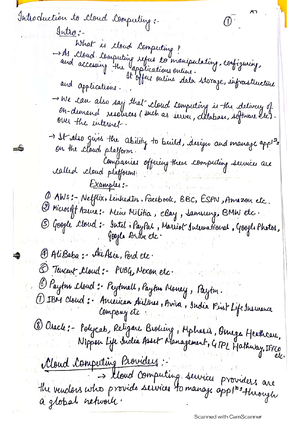 Introduction to Cloud Computing:-
①
Intro:-
What is Cloud Computing?
→ As Cloud Computing refers to manipulating, configuring,
and accessing the applications online.
It offers online data storage, infrastructure
and applications.
→ We can also say that cloud computing is the delivery of
on-demand resources (such as server, database, software etc)
over the internet.
→ It also gives the ability to build, design and manage appl
on the cloud platform.
Companies offering these computing services are
called cloud platforms.
Examples:-
① AWS:- Netflix, LinkedIn, Facebook, BBC, ESPN, Amazon etc.
② Microsoft Azure:- Mini Militia, eBay, Samsung, BMW etc.
③ Google Cloud:- Intel, PayPal, Marriot International, Google Photos,
Google Drive etc.
④ AliBaba:- AirAsia, Ford etc.
⑤ Tencent Cloud:- PUBG, etc.
⑥ Paytm Cloud:- Paytmall, Paytm Money, Paytm.
⑦ IBM Cloud:- American Airlines, Aviva, India First Life Insurance
Company etc.
⑧ Oracle:- Polycab, Religare Broking, Mphasis, Omega Healthcare,
Nippon Life India Asset Management, GTPL Hathway, IFFCO
etc.
Cloud Computing Providers:-
→ Cloud Computing services providers are
the vendors who provide services to manage appl through
a global network.
Scanned with CamScanner